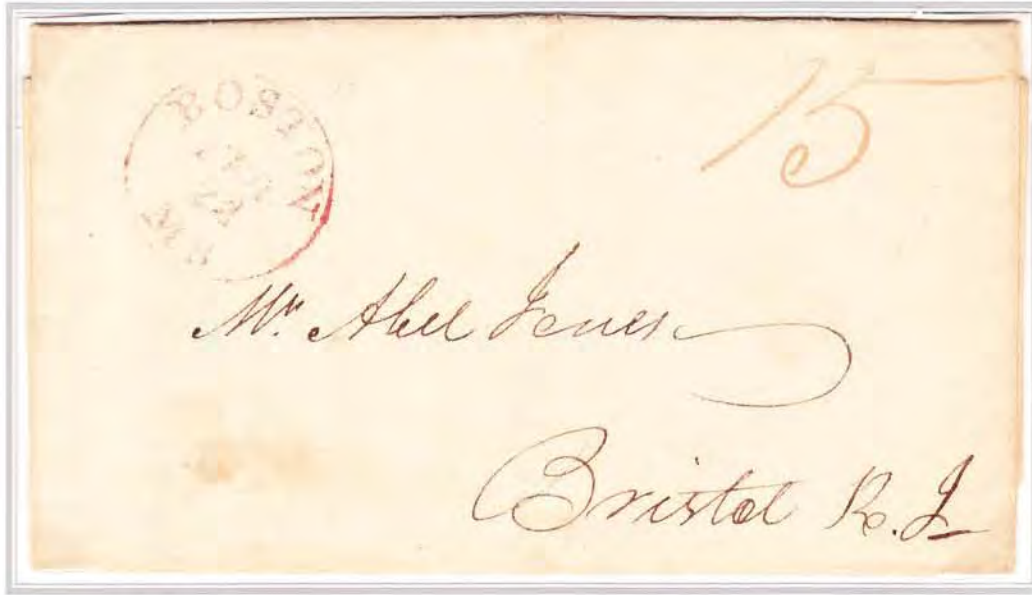 BOSTON
MS
15
Mr. Abel Jones
Bristol R.I